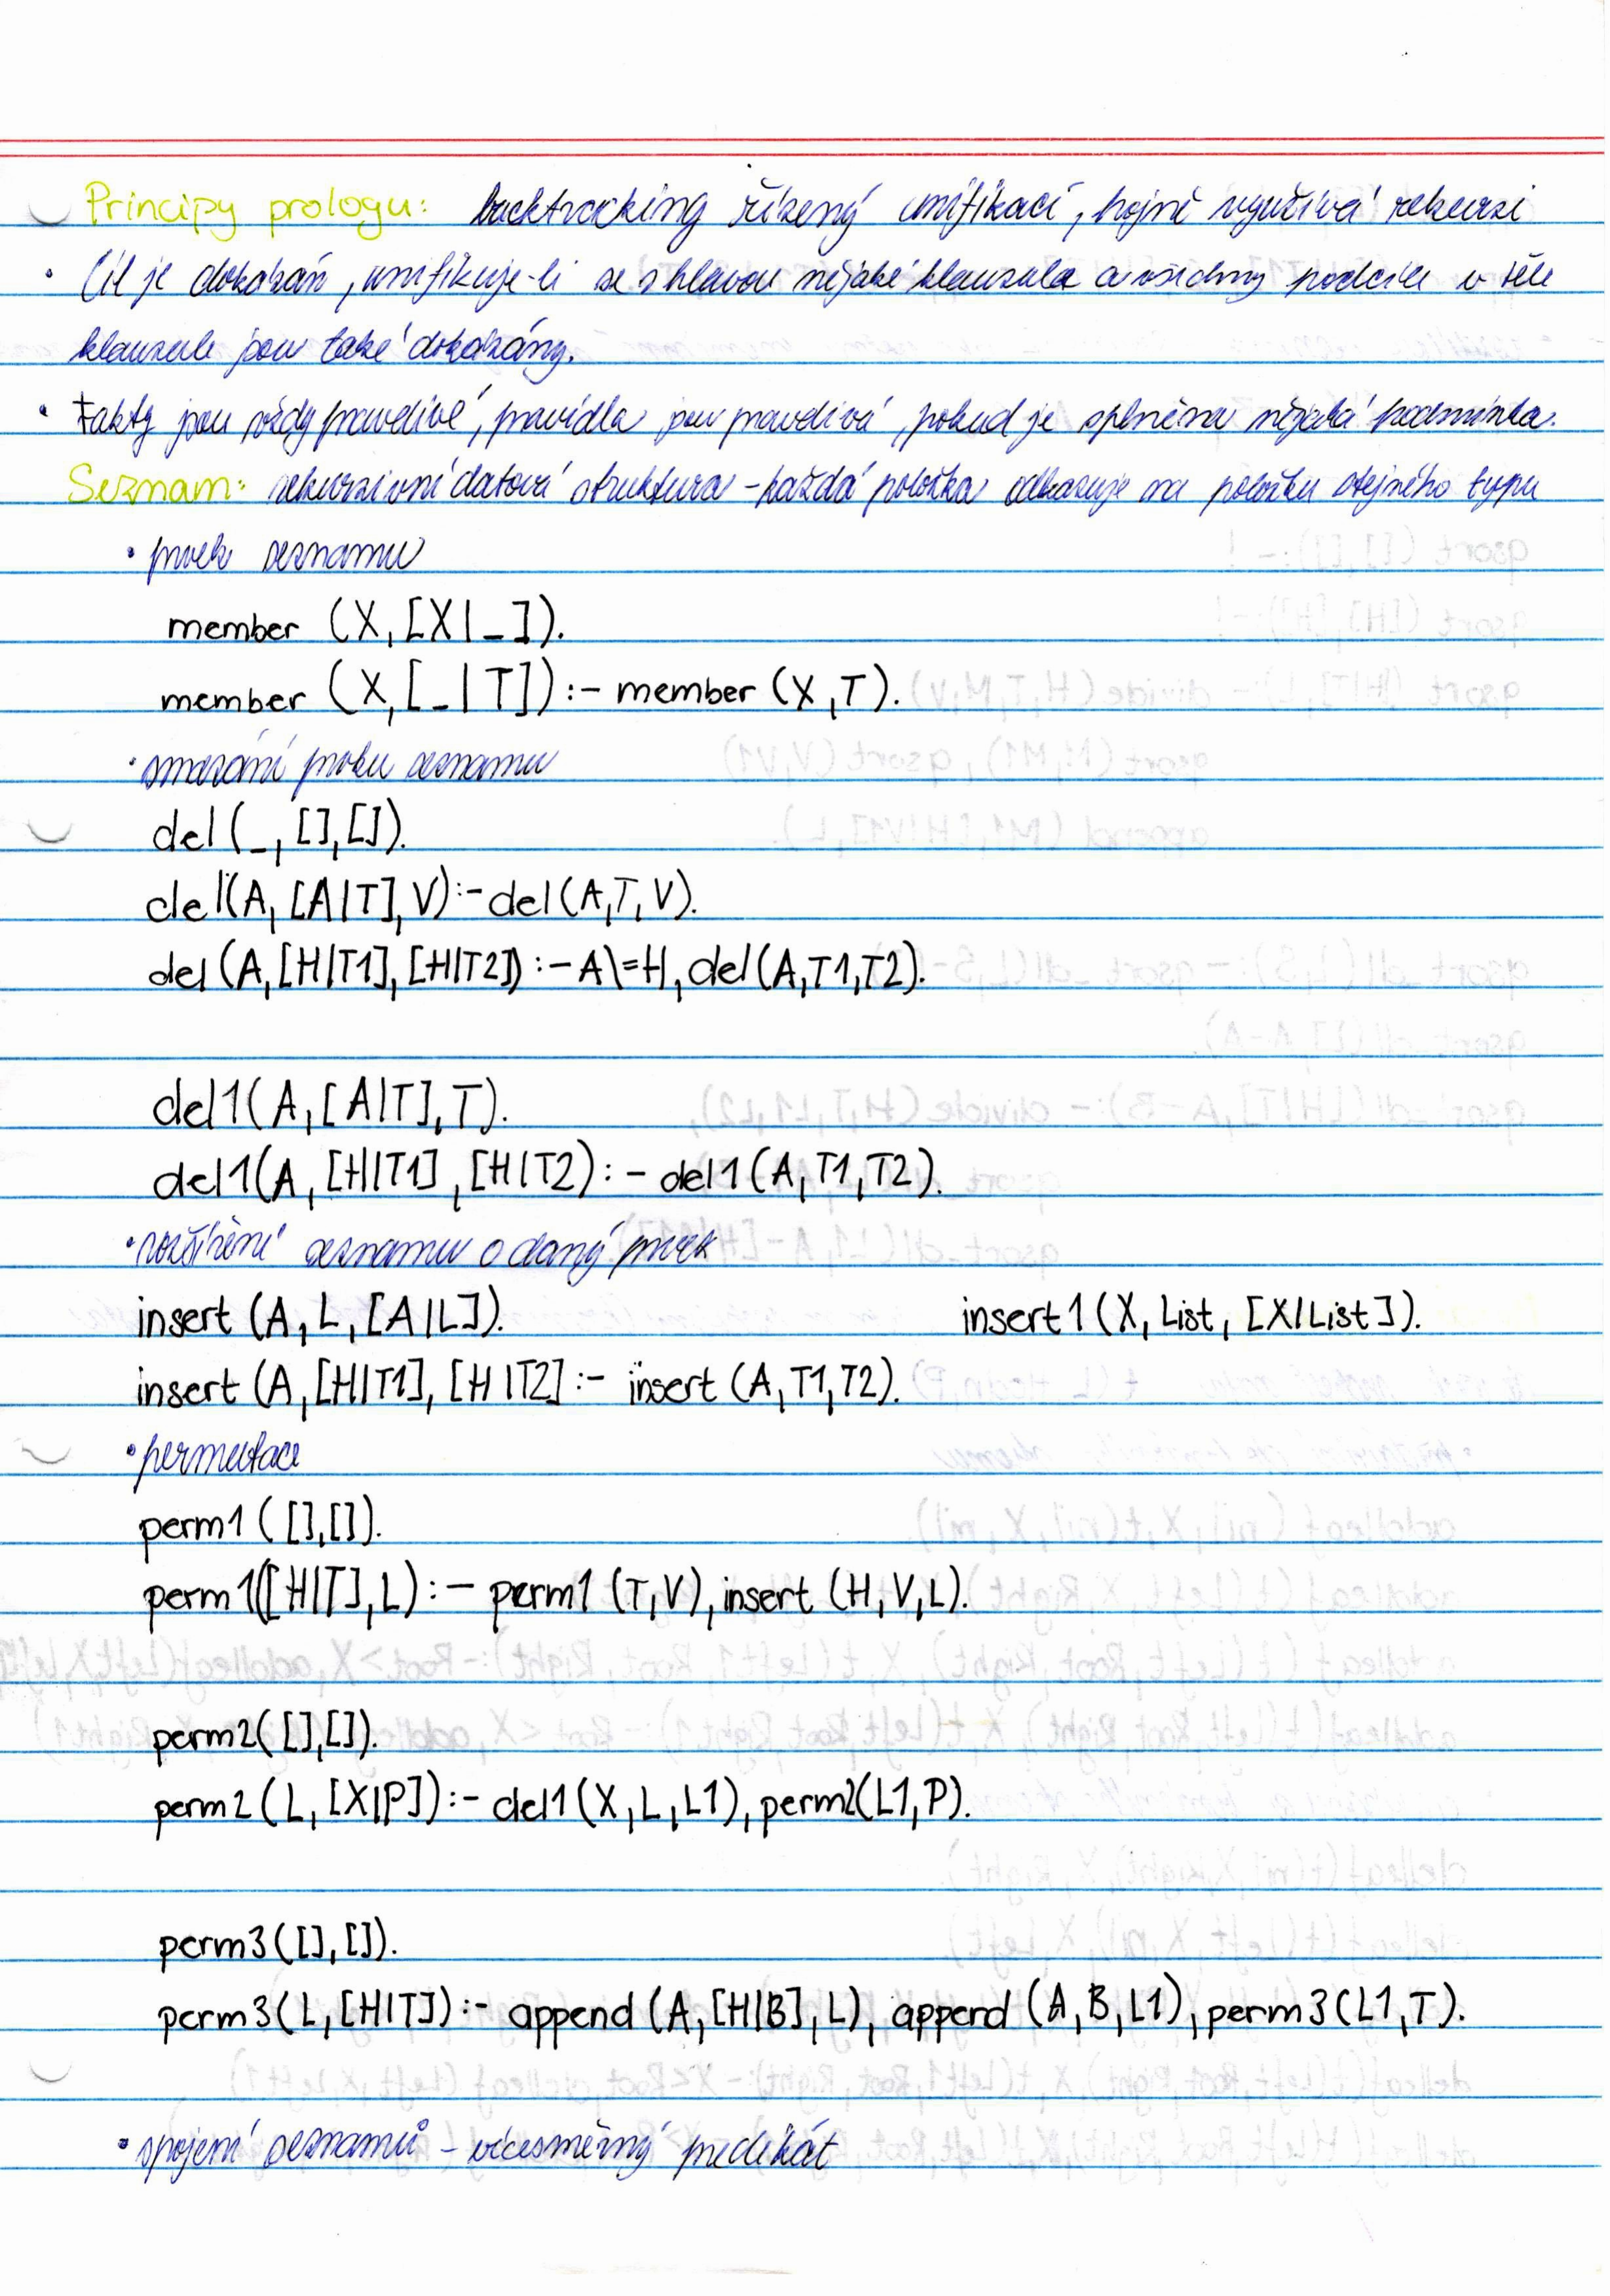 Principy prologu: backtracking řízený unifikací, hojně využívá rekurzi
• Cíl je dokázán, unifikuje-li se s hlavou nějaké klauzule a všechny podcíle v těle
klauzule jsou také dokázány.
• Fakty jsou vždy pravdivé, pravidla jsou pravdivá, pokud je splněna nějaká podmínka.
Seznam: rekurzivní datová struktura - každá položka odkazuje na položku stejného typu
• prvek seznamu
member (X, [X|_]).
member (X, [_|T]) :- member (X,T).
• smazání prvku seznamu
del (_, [], []).
del(A, [A|T], V) :- del (A,T,V).
del (A, [H|T1], [H|T2]) :- A\=H, del(A,T1,T2).
del1(A, [A|T], T).
del1(A, [H|T1], [H|T2) :- del1 (A,T1,T2).
• rozšíření seznamu o daný prvek
insert (A, L, [A|L]). insert1 (X, List, [X|List]).
insert (A, [H|T1], [H|T2] :- insert (A,T1,T2).
• permutace
perm1 ([],[]).
perm1([H|T], L) :- perm1 (T,V), insert (H,V,L).
perm2([],[]).
perm2 (L, [X|P]) :- del1 (X,L,L1), perm2(L1,P).
perm3([], []).
perm3(L, [H|T]) :- append (A, [H|B], L), append (A,B,L1), perm3(L1,T).
• spojení seznamů - vícesměrný predikát